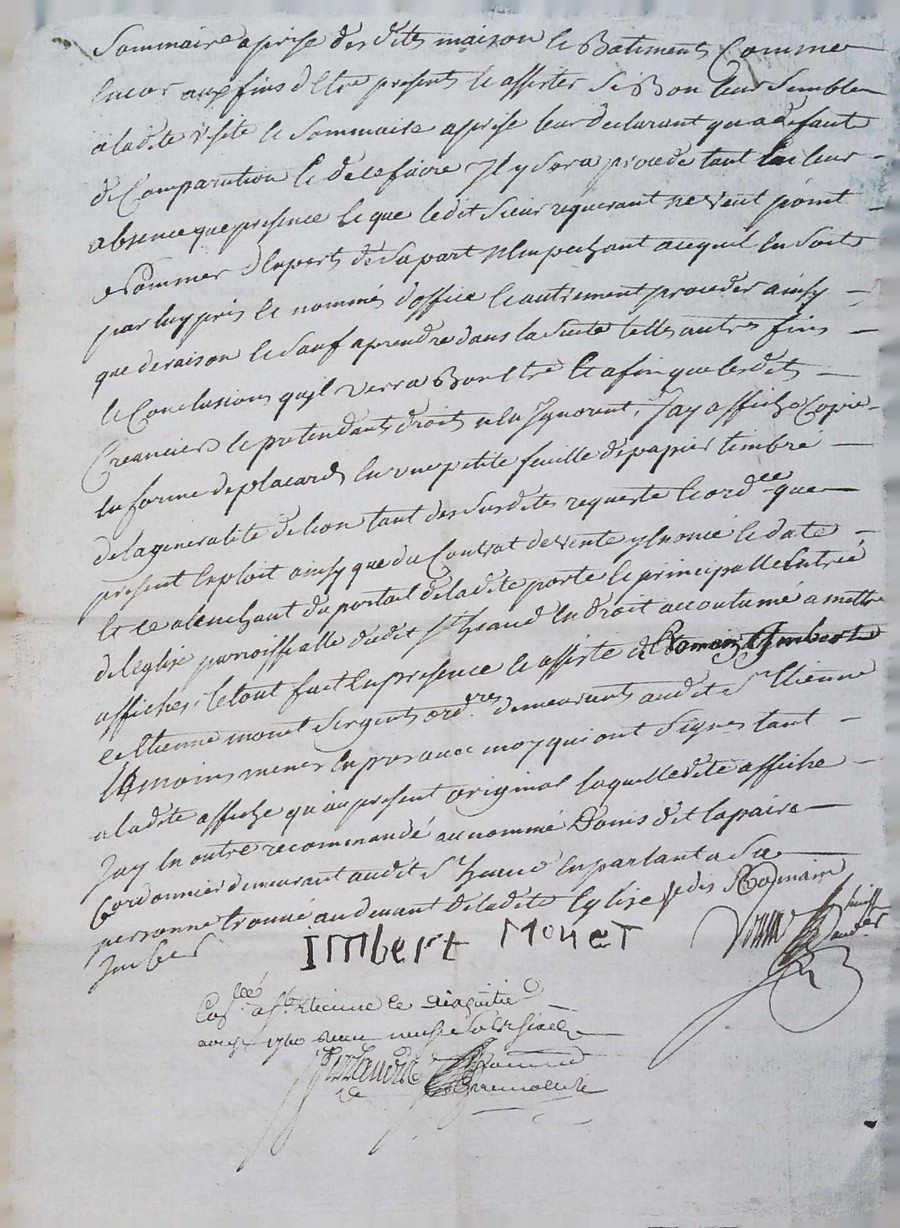 Sommaire aprise desdits maison et Batiments Comme
encor aux fins d'Etre presents et assister Si Bon leur Semble
a ladite visite et Sommaire aprise leur declarant qua defaut
de Comparution et de ce faire Il y Sera procede tant En leur
absence que presence Et que ledit Sieur requerant ne veut point
Nommer d'Experts de Sa part N'Empechant acequil En Soit
par luy pris et nommés d'office et autrement proceder ainsy
que de raison et Sauf aprendre dans la Suite telles autres fins
et Conclusions quil verra Bon Etre Et afin que lesdits
Creanciers et pretendants droits n'En Ignorent, Jay affiché Copie
En forme de placard En une petite feuille de papier timbré
de la generalité de lion tant des Susdites requeste et ordce que
present Exploit ainsy que du Contrat de vente y Enoncé et date
Et ce alenchant du portail de ladite porte et principalle Entrée
del'Eglise parroissialle dudit St heand En droit accoutumé a mettre
affiches. le tout fait En presence et assisté de Romain Imbert
et Etienne monet Sergents ordres demeurants audit St Etienne
témoins menés Expres avec moy qui ont Signés tant
a ladite affiche qu'au present original laquelledite affiche
Jay En outre recommandé au nommé Denis dit lapaire
Cordonnier demeurant audit St heand En parlant a Sa
personne trouvé audevant de ladite Eglise Je dis Romain
Imbert
IMBerT MoneT
Collé a St Etienne le
avril 1760 Reçu neuf Sols